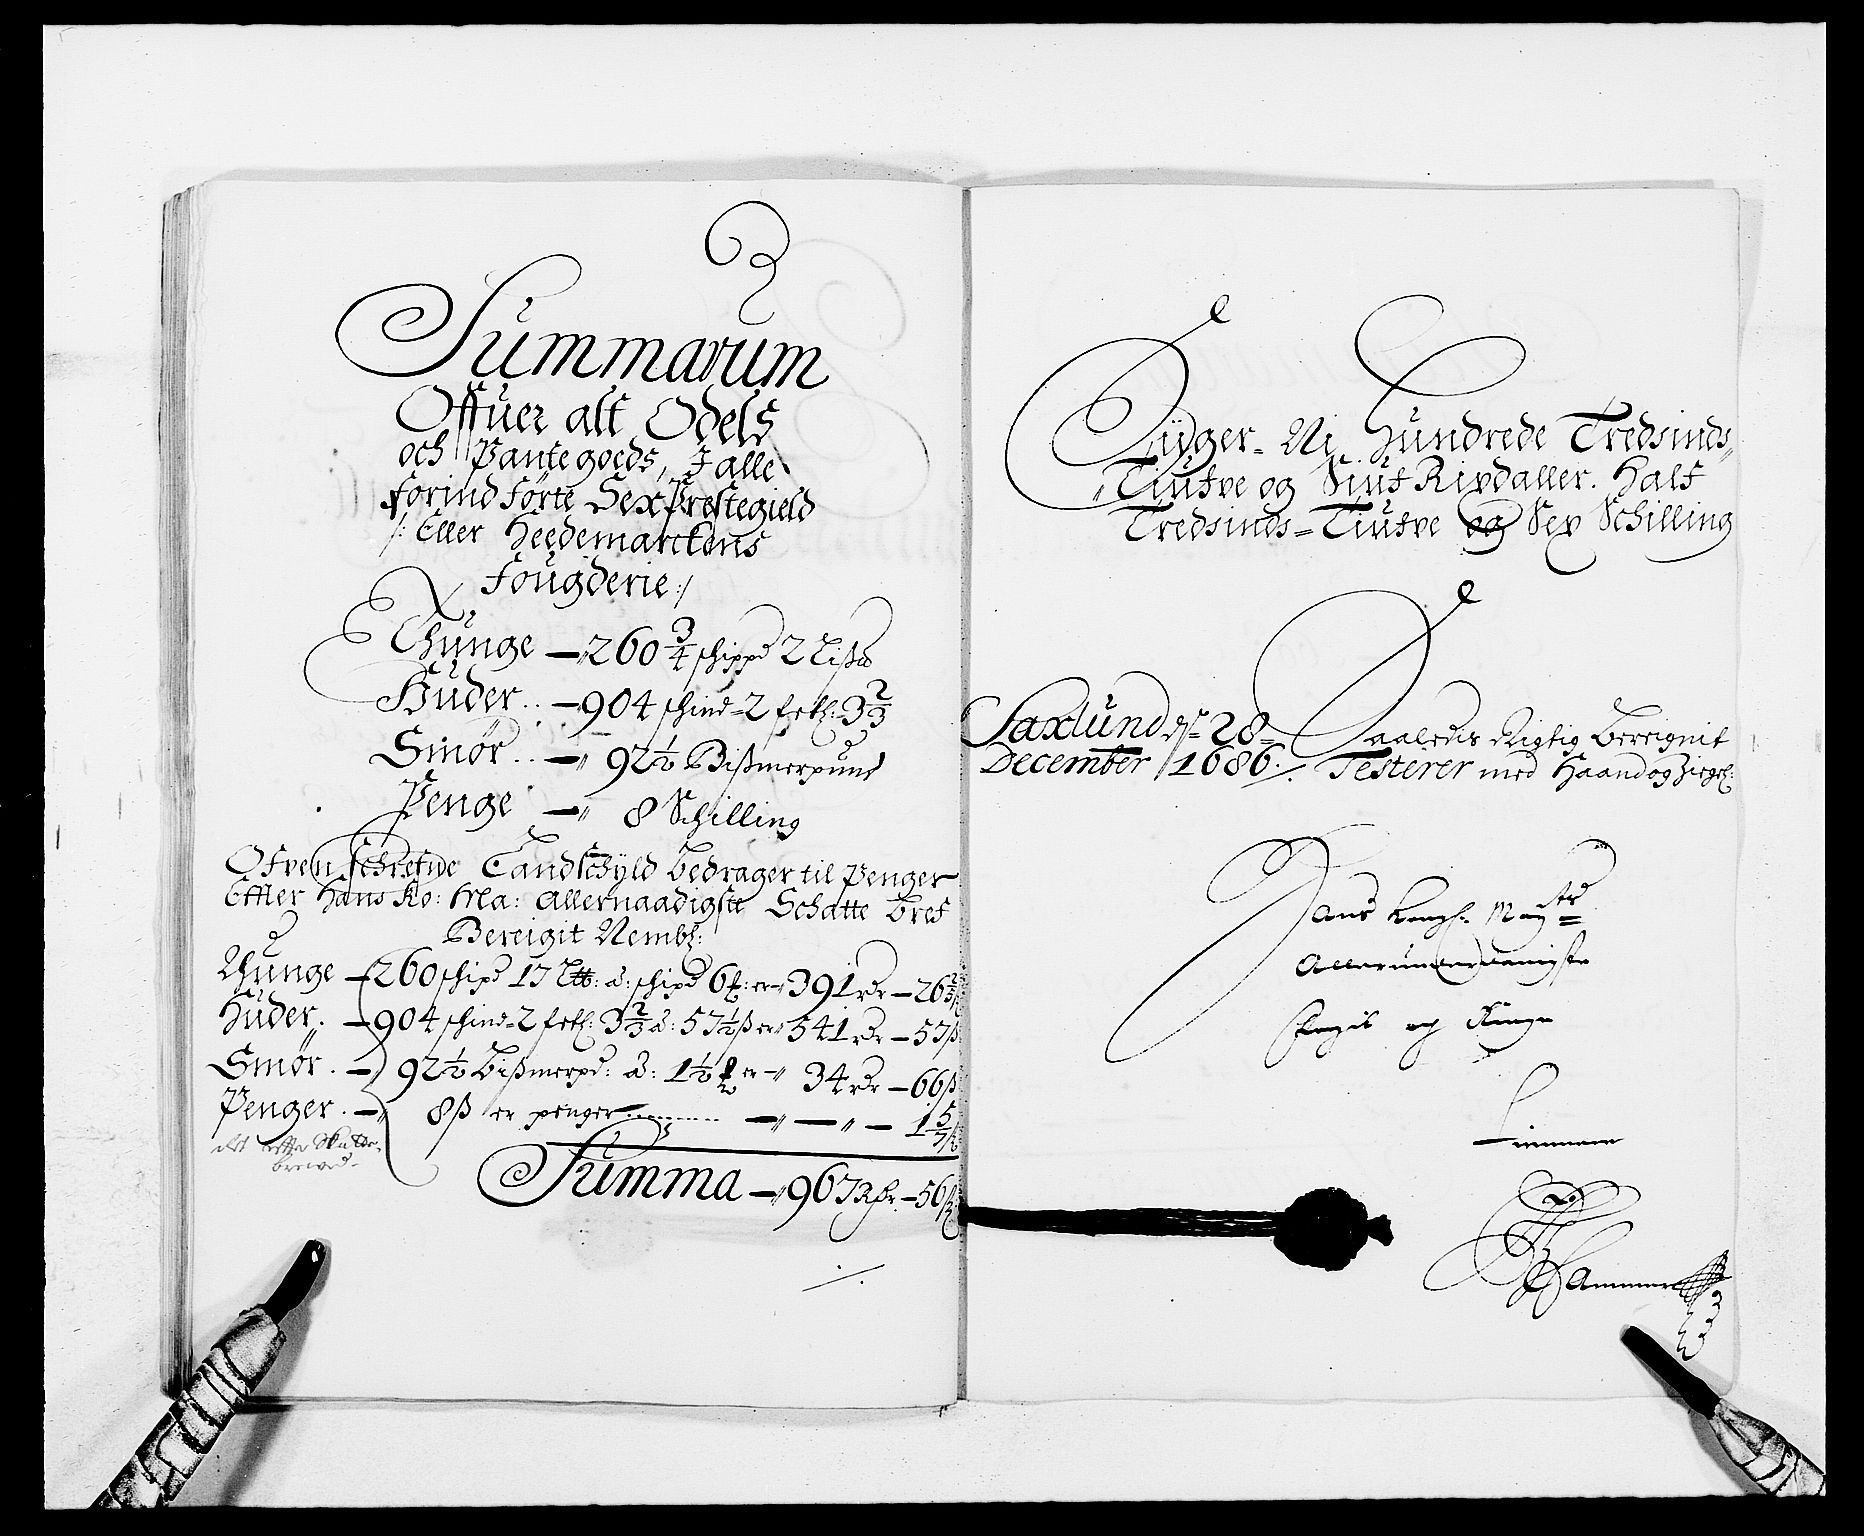 Summarum
Offuer alt Odels
och Pantegoeds, J alle
forind förte Sex Prestegield
/: Eller Heedemarckens
fougderie :/
Thunge — 260 3/4 schippd 2 Lißd
Huder .. — 904 schind = 2 fetl: 3 2/3
Smör .. — 92 1/2 Bißmerpund
Penge — 8 Schilling
Ofvenschrefne Landschyld bedrager til Penger
Effter Hans Ko: Ma: Allernaadigste Schatte bref
Bereigit Nembl:
Thunge — 260 schipd 17 Ltt: a: schipd 6 : er 391 rdr — 26 2/3
Huder. — 904 schind = 2 fetl: 3 2/3 a: 57 1/2 ß er 541 rdr — 57 ß
Smör. — 92 1/2 bißmerpd: a: 1 1/2 er 34 rdr — 66 ß
Penger. — 8 ß er penger — — 1 5/7
Summa — 967 Rdr — 56
Siger Ni hundrede Tredsinds
Tiufve og Siuf Rixdaller. Half
Tredsinds = Tiufve og Sex Schilling
Saxlund d. 28
December 1686.
Saaledis Rigtig bereignit
Testerer med Haand og Ziegel:
Hans Kongl: Maytts
Allerunderdanigste
Pligtig og
Hammer